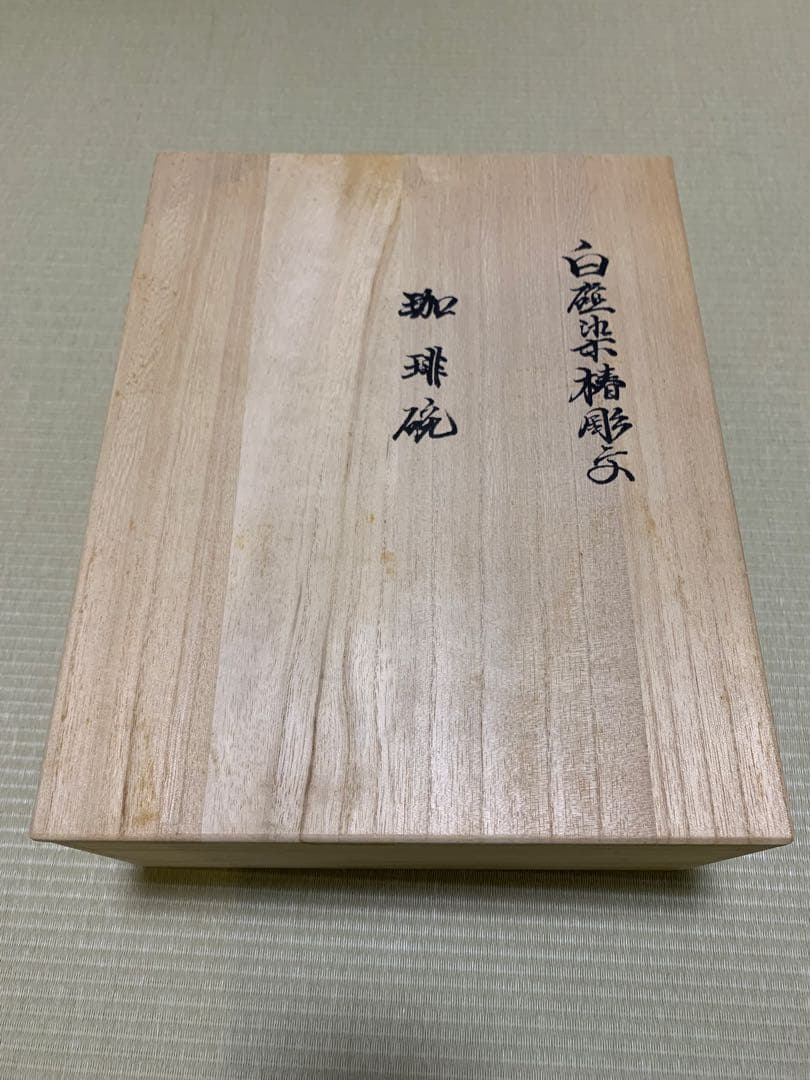 白磁染椿彫文
珈琲碗